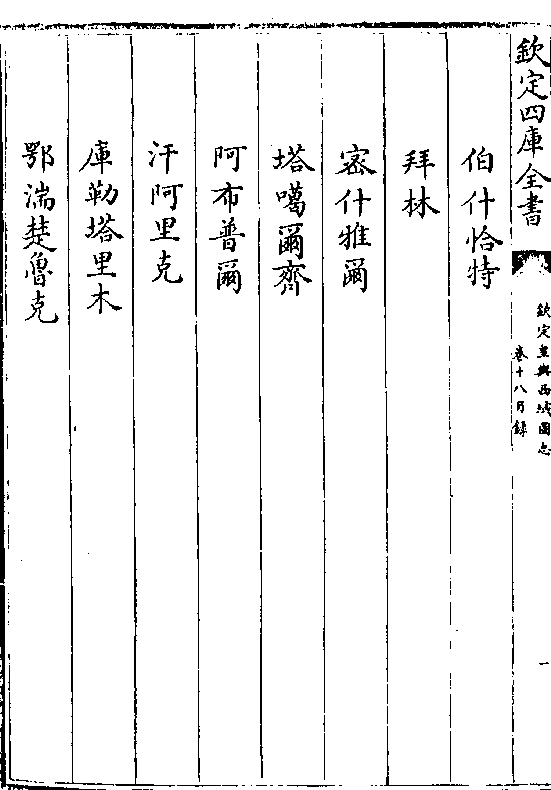 欽定四庫全書
欽定皇輿西域圖志
卷十八目錄
一
伯什恰特
拜林
密什雅爾
塔噶爾齊
阿布普爾
汗阿里克
庫勒塔里木
鄂湍楚魯克